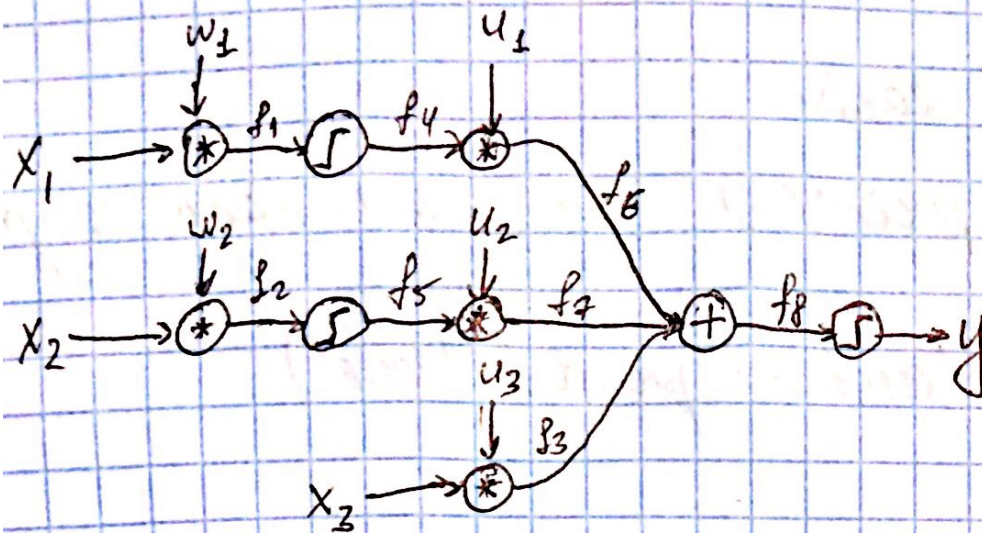 w1 u1
x1 * f1 ∫ f4 * f6
w2 u2
x2 * f2 ∫ f5 * f7 + f8 ∫ y
u3
x3 * f3